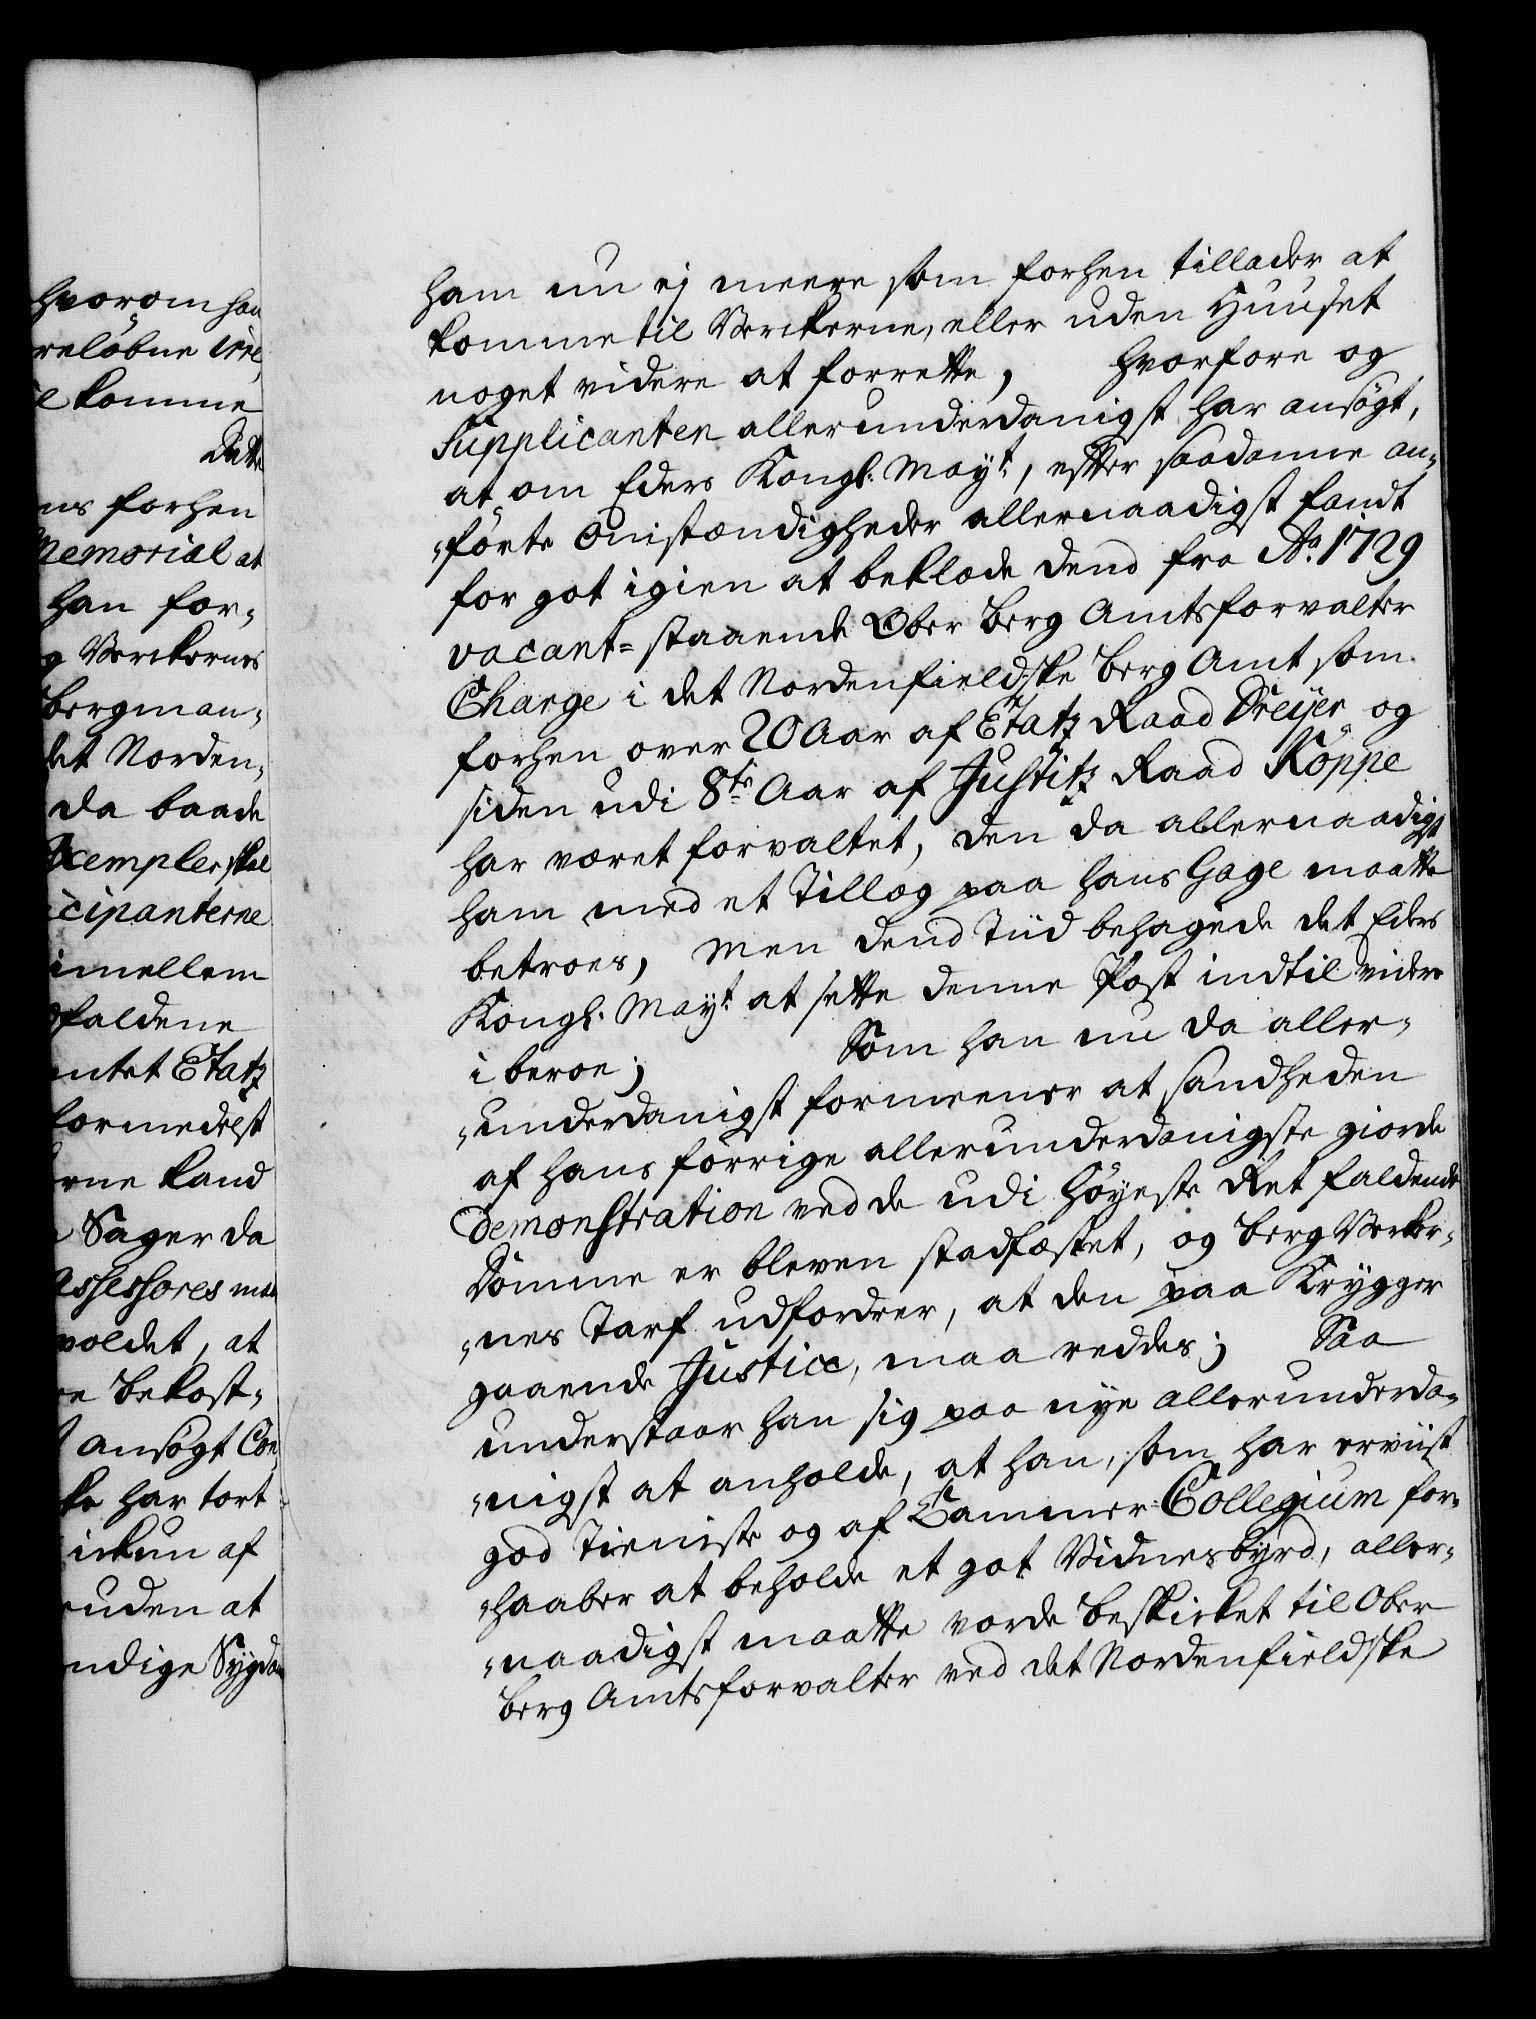 hvorom han
reløbne Irre
e komme
Dette
ns forhen
Memorial at
han for-
g Verckernes
bergman-
det Norden-
da baade
Exempler skal
icipanterne
imellem
faldene
ntet Etatz
formedelst
rne kand
Sager da
Assessores maa
voldet, at
re bekost-
ansøgt Con
ke har tort
ickun af
uden at
ndige Sygdom
ham nu ej meere som forhen tillader at
komme til Verckerne, eller uden Huuset
noget videre at forrette, hvorfore og
Supplicanten allerunderdanigst har ansøgt,
at om Eders Kongl. Mayt, efter saadanne an-
-førte Omstændigheder allernaadigst fandt
for got igien at beklæde dend fra Ao. 1729
vacant-staaende Ober Berg Amtsforvalter
Charge i det Nordenfieldske Berg Amt som
forhen over 20 Aar af Etatz Raad Dreÿer og
siden udi 8te Aar af Justitz Raad Köppe
har været forvaltet, den da allernaadigst
ham med et Tillæg paa hans Gage maatte
betroes, Men dend Tiid behagede det Eders
Kongl. Mayt at sette denne Post indtil videre
i beroe; Som han nu da aller-
-underdanigst formeener at sandheden
af hans forrige allerunderdanigste giorde
Demonstration ved de udi Høyeste Ret faldende
Domme er bleven stadfæstet, og Berg Verker-
-nes Tarf udfordrer, at den paa Krygger
gaaende Justice, maa reddes; Saa
understaar han sig paa nye allerunderda-
-nigst at anholde, at han, som har erviist
god Tieniste og af Cammer-Collegium for-
-haaber at beholde et got Vidnesbyrd, aller-
-naadigst maatte vorde beskicket til Ober
Berg Amtsforvalter ved det Nordenfieldske